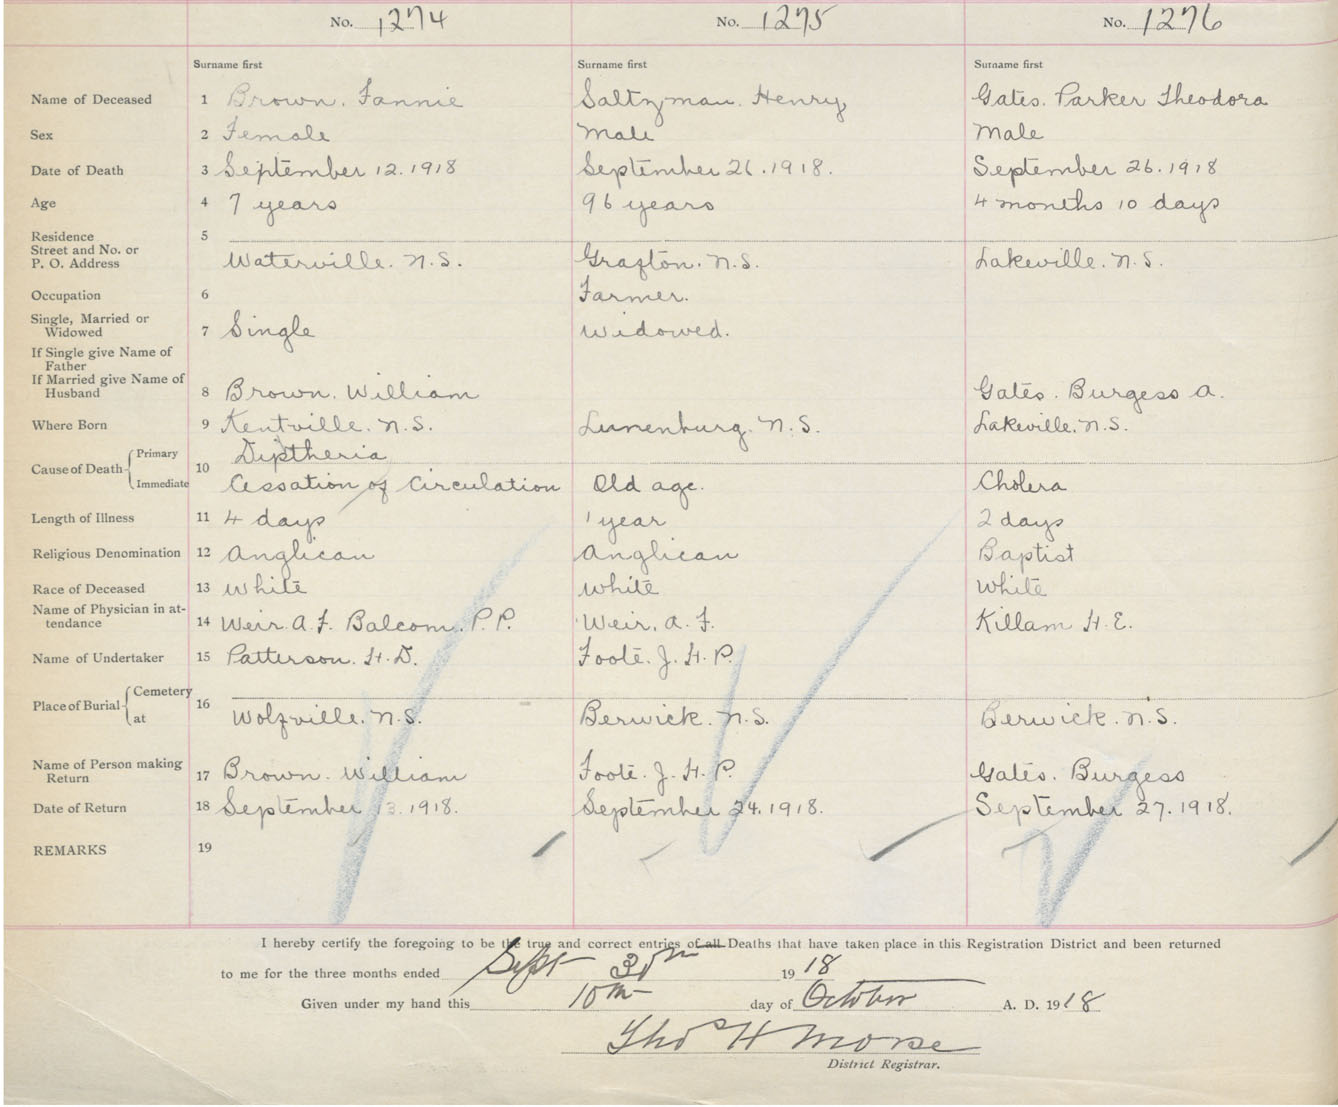 No. 1274 No. 1275 No. 1276
Surname first Surname first Surname first
Name of Deceased 1 Brown. Fannie Saltzman. Henry Gates. Parker Theodora
Sex 2 Female Male Male
Date of Death 3 September 12. 1918 September 26. 1918. September 26. 1918
Age 4 7 years 96 years 4 months 10 days
Residence 5
Street and No. or
P. O. Address Waterville. N.S. Grafton. N.S. Lakeville. N.S.
Occupation 6 Farmer.
Single, Married or
Widowed 7 Single Widowed.
If Single give Name of
Father
If Married give Name of
Husband 8 Brown. William Gates. Burgess A.
Where Born 9 Kentville. N.S. Lunenburg. N.S. Lakeville. N.S.
Cause of Death Primary 10 Diptheria
Immediate Cessation of Circulation Old age. Cholera
Length of Illness 11 4 days 1 year 2 days
Religious Denomination 12 Anglican Anglican Baptist
Race of Deceased 13 White White White
Name of Physician in at-
tendance 14 Weir A. F. Balcom. P. P. Weir. A. F. Killam H. E.
Name of Undertaker 15 Patterson. H. D. Foote. J. H. P.
Place of Burial Cemetery 16
at Wolfville. N.S. Berwick. N.S. Berwick. N.S.
Name of Person making
Return 17 Brown. William Foote. J. H. P. Gates. Burgess
Date of Return 18 September 13. 1918. September 24. 1918. September 27. 1918.
REMARKS 19
I hereby certify the foregoing to be the true and correct entries of all Deaths that have taken place in this Registration District and been returned
to me for the three months ended Sept 30th 1918
Given under my hand this 10th day of October A. D. 1918
Thos H Morse
District Registrar.